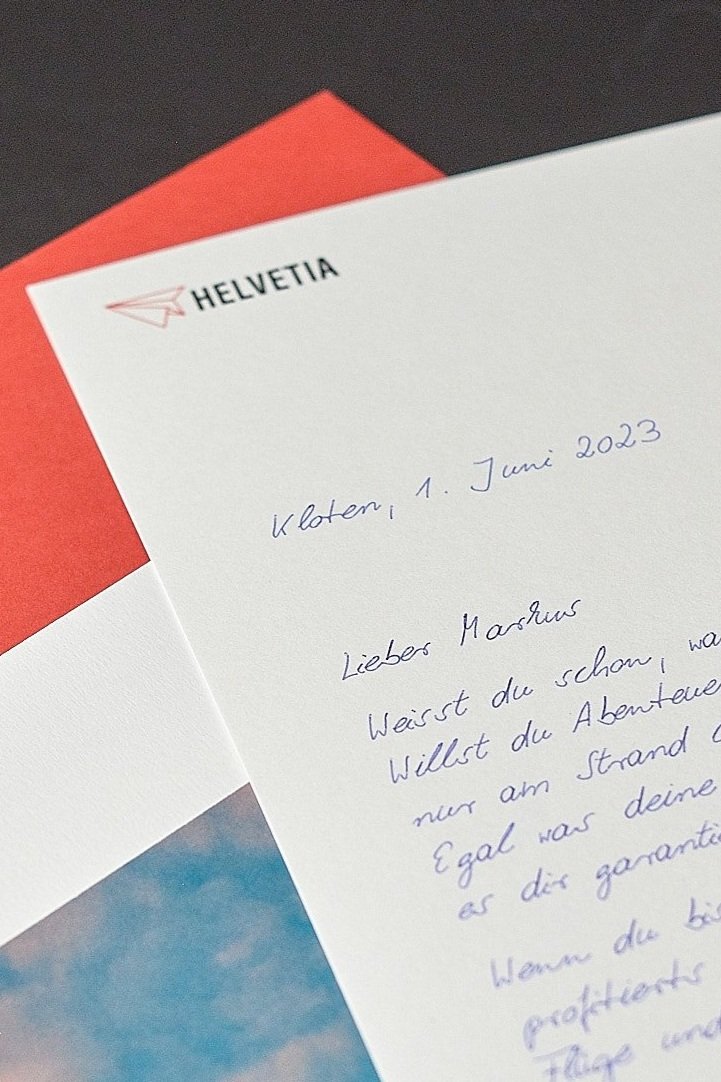 HELVETIA
Kloten, 1. Juni 2023
Lieber Markus
Weisst du schon, wa
Willst du Abenteue
nur am Strand
Egal was deine
es dir garanti
Wenn du bis
profitierts
Flüge und